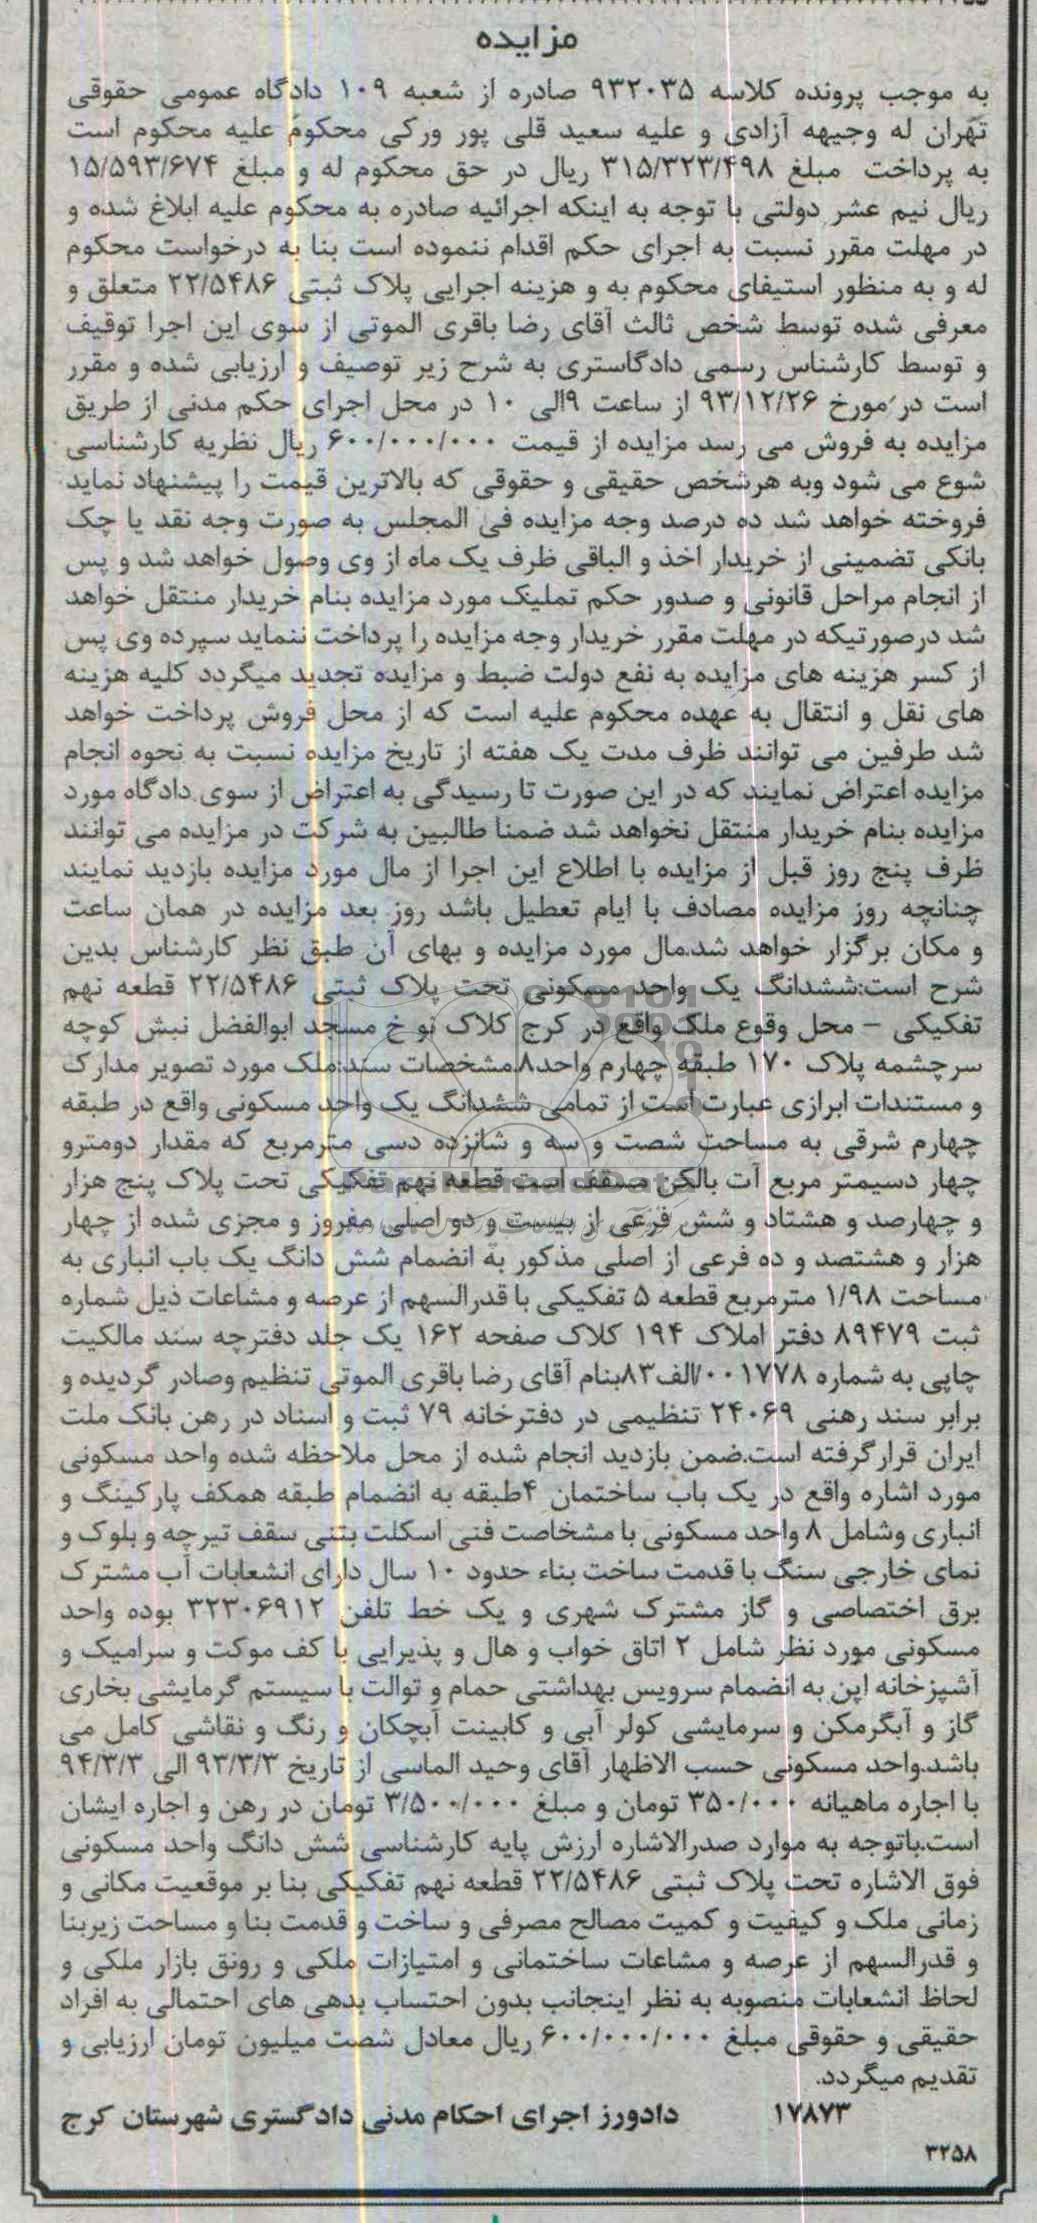 مزایده
به موجب پرونده کلاسه ۹۳۲۰۳۵ صادره از شعبه ۱۰۹ دادگاه عمومی حقوقی
تهران له وجیهه آزادی و علیه سعید قلی پور ورکی محکوم علیه محکوم است
به پرداخت مبلغ ۳۱۵/۳۲۳/۴۹۸ ریال در حق محکوم له و مبلغ ۱۵/۵۹۳/۶۷۴
ریال نیم عشر دولتی با توجه به اینکه اجرائیه صادره به محکوم علیه ابلاغ شده و
در مهلت مقرر نسبت به اجرای حکم اقدام ننموده است بنا به درخواست محکوم
له و به منظور استیفای محکوم به و هزینه اجرایی پلاک ثبتی ۲۲/۵۴۸۶ متعلق و
معرفی شده توسط شخص ثالث آقای رضا باقری الموتی از سوی این اجرا توقیف
و توسط کارشناس رسمی دادگاستری به شرح زیر توصیف و ارزیابی شده و مقرر
است در مورخ ۹۳/۱۲/۲۶ از ساعت ۹الی ۱۰ در محل اجرای حکم مدنی از طریق
مزایده به فروش می رسد مزایده از قیمت ۶۰۰/۰۰۰/۰۰۰ ریال نظریه کارشناسی
شوع می شود وبه هرشخص حقیقی و حقوقی که بالاترین قیمت را پیشنهاد نماید
فروخته خواهد شد ده درصد وجه مزایده فی المجلس به صورت وجه نقد یا چک
بانکی تضمینی از خریدار اخذ و الباقی ظرف یک ماه از وی وصول خواهد شد و پس
از انجام مراحل قانونی و صدور حکم تملیک مورد مزایده بنام خریدار منتقل خواهد
شد درصورتیکه در مهلت مقرر خریدار وجه مزایده را پرداخت ننماید سپرده وی پس
از کسر هزینه های مزایده به نفع دولت ضبط و مزایده تجدید میگردد کلیه هزینه
های نقل و انتقال به عهده محکوم علیه است که از محل فروش پرداخت خواهد
شد طرفین می توانند ظرف مدت یک هفته از تاریخ مزایده نسبت به نحوه انجام
مزایده اعتراض نمایند که در این صورت تا رسیدگی به اعتراض از سوی دادگاه مورد
مزایده بنام خریدار منتقل نخواهد شد ضمنا طالبین به شرکت در مزایده می توانند
ظرف پنج روز قبل از مزایده با اطلاع این اجرا از مال مورد مزایده بازدید نمایند
چنانچه روز مزایده مصادف با ایام تعطیل باشد روز بعد مزایده در همان ساعت
و مکان برگزار خواهد شد.مال مورد مزایده و بهای آن طبق نظر کارشناس بدین
شرح است:ششدانگ یک واحد مسکونی تحت پلاک ثبتی ۲۲/۵۴۸۶ قطعه نهم
تفکیکی - محل وقوع ملک واقع در کرج کلاک نو خ مسجد ابوالفضل نبش کوچه
سرچشمه پلاک ۱۷۰ طبقه چهارم واحد۸.مشخصات سند:ملک مورد تصویر مدارک
و مستندات ابرازی عبارت است از تمامی ششدانگ یک واحد مسکونی واقع در طبقه
چهارم شرقی به مساحت شصت و سه و شانزده دسی مترمربع که مقدار دومترو
چهار دسیمتر مربع آت بالکن مسقف است قطعه نهم تفکیکی تحت پلاک پنج هزار
و چهارصد و هشتاد و شش فرعی از بیست و دو اصلی مفروز و مجزی شده از چهار
هزار و هشتصد و ده فرعی از اصلی مذکور به انضمام شش دانگ یک باب انباری به
مساحت ۱/۹۸ مترمربع قطعه ۵ تفکیکی با قدرالسهم از عرصه و مشاعات ذیل شماره
ثبت ۸۹۴۷۹ دفتر املاک ۱۹۴ کلاک صفحه ۱۶۲ یک جلد دفترچه سند مالکیت
چاپی به شماره ۰۰۱۷۷۸/الف۸۳بنام آقای رضا باقری الموتی تنظیم وصادر گردیده و
برابر سند رهنی ۲۴۰۶۹ تنظیمی در دفترخانه ۷۹ ثبت و اسناد در رهن بانک ملت
ایران قرارگرفته است.ضمن بازدید انجام شده از محل ملاحظه شده واحد مسکونی
مورد اشاره واقع در یک باب ساختمان ۴طبقه به انضمام طبقه همکف پارکینگ و
انباری وشامل ۸ واحد مسکونی با مشخاصت فنی اسکلت بتنی سقف تیرچه و بلوک و
نمای خارجی سنگ با قدمت ساخت بناء حدود ۱۰ سال دارای انشعابات آب مشترک
برق اختصاصی و گاز مشترک شهری و یک خط تلفن ۳۲۳۰۶۹۱۲ بوده واحد
مسکونی مورد نظر شامل ۲ اتاق خواب و هال و پذیرایی با کف موکت و سرامیک و
آشپزخانه اپن به انضمام سرویس بهداشتی حمام و توالت با سیستم گرمایشی بخاری
گاز و آبگرمکن و سرمایشی کولر آبی و کابینت آبچکان و رنگ و نقاشی کامل می
باشد.واحد مسکونی حسب الاظهار آقای وحید الماسی از تاریخ ۹۳/۳/۳ الی ۹۴/۳/۳
با اجاره ماهیانه ۳۵۰/۰۰۰ تومان و مبلغ ۳/۵۰۰/۰۰۰ تومان در رهن و اجاره ایشان
است.باتوجه به موارد صدرالاشاره ارزش پایه کارشناسی شش دانگ واحد مسکونی
فوق الاشاره تحت پلاک ثبتی ۲۲/۵۴۸۶ قطعه نهم تفکیکی بنا بر موقعیت مکانی و
زمانی ملک و کیفیت و کمیت مصالح مصرفی و ساخت و قدمت بنا و مساحت زیربنا
و قدرالسهم از عرصه و مشاعات ساختمانی و امتیازات ملکی و رونق بازار ملکی و
لحاظ انشعابات منصوبه به نظر اینجانب بدون احتساب بدهی های احتمالی به افراد
حقیقی و حقوقی مبلغ ۶۰۰/۰۰۰/۰۰۰ ریال معادل شصت میلیون تومان ارزیابی و
تقدیم میگردد.
۱۷۸۷۳ دادورز اجرای احکام مدنی دادگستری شهرستان کرج
۳۲۵۸